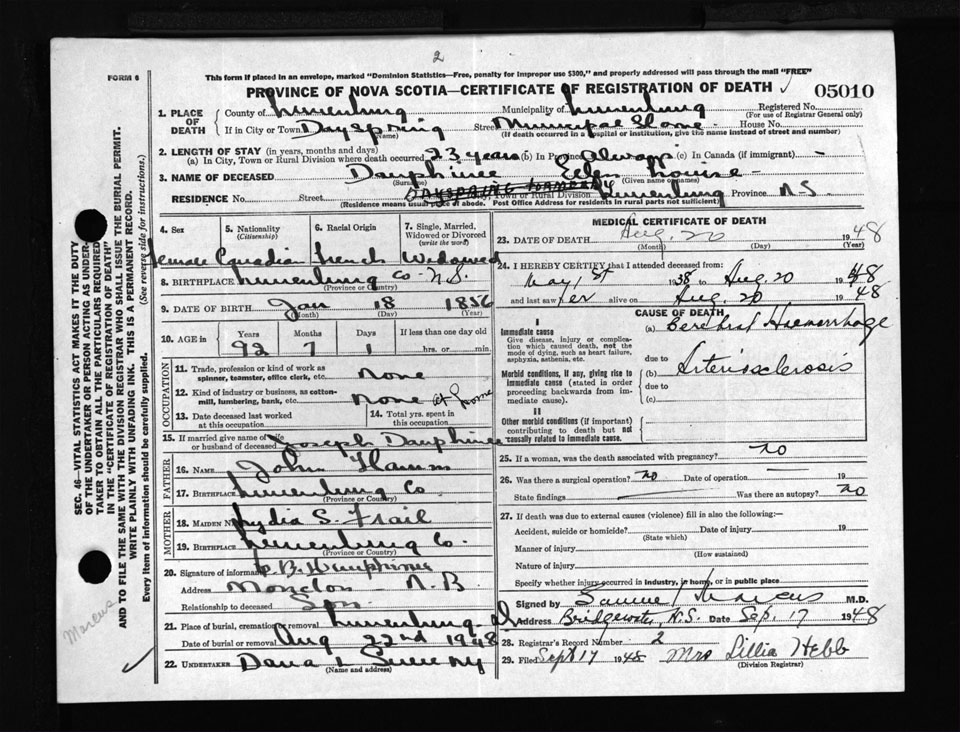 2
FORM 6
This form if placed in an envelope, marked "Dominion Statistics—Free, penalty for improper use $300," and properly addressed will pass through the mail "FREE"
PROVINCE OF NOVA SCOTIA—CERTIFICATE OF REGISTRATION OF DEATH
05010
1. PLACE OF DEATH County of Lunenburg Municipality of Lunenburg Registered No.
(For use of Registrar General only)
If in City or Town Dayspring Street Municipal Home House No.
(Name) (If death occurred in a hospital or institution, give the name instead of street and number)
2. LENGTH OF STAY (in years, months and days)
(a) In City, Town or Rural Division where death occurred 23 years (b) In Province Always (c) In Canada (if immigrant) -
3. NAME OF DECEASED Dauphinee Ellen Louise -
(Surname) (Given name or names)
RESIDENCE No. Street City, Town or Rural Division Lunenburg Province N-S
(Residence means usual place of abode. Post Office Address for residents in rural parts not sufficient)
4. Sex
5. Nationality (Citizenship)
6. Racial Origin
7. Single, Married, Widowed or Divorced (write the word)
Female Canadian French Widowed
8. BIRTHPLACE Lunenburg Co - N.S.
(Province or Country)
9. DATE OF BIRTH Jan 18 1856
(Month) (Day) (Year)
10. AGE in Years Months Days If less than one day old
92 7 1 hrs. or min.
OCCUPATION
11. Trade, profession or kind of work as spinner, teamster, office clerk, etc. none
12. Kind of industry or business, as cotton-mill, lumbering, bank, etc. none at home
13. Date deceased last worked at this occupation
14. Total yrs. spent in this occupation
15. If married give name of wife or husband of deceased Joseph Dauphinee
FATHER
16. NAME John Hamm
17. BIRTHPLACE Lunenburg Co
(Province or Country)
MOTHER
18. MAIDEN NAME Lydia S. Frail
19. BIRTHPLACE Lunenburg Co.
(Province or Country)
20. Signature of informant
Address Moncton - N.B
Relationship to deceased Son
21. Place of burial, cremation or removal Lunenburg
Date of burial or removal Aug 22nd 1948
22. UNDERTAKER
(Name and address)
MEDICAL CERTIFICATE OF DEATH
23. DATE OF DEATH Aug. 20 1948
(Month) (Day) (Year)
24. I HEREBY CERTIFY that I attended deceased from:
May, 1st 1938 to Aug. 20 1948
and last saw her alive on Aug. 20 1948
CAUSE OF DEATH
I
Immediate cause
Give disease, injury or complication which caused death, not the mode of dying, such as heart failure, asphyxia, asthenia, etc.
(a) Cerebral Haemorrhage
due to
Morbid conditions, if any, giving rise to immediate cause (stated in order proceeding backwards from immediate cause).
(b) Arteriosclerosis
due to
(c)
II
Other morbid conditions (if important) contributing to death but not causally related to immediate cause.
25. If a woman, was the death associated with pregnancy? no
26. Was there a surgical operation? no Date of operation 19
State findings Was there an autopsy? no
27. If death was due to external causes (violence) fill in also the following:—
Accident, suicide or homicide? Date of injury 19
(State which)
Manner of injury
(How sustained)
Nature of injury
Specify whether injury occurred in industry, in home, or in public place
Signed by Samuel Marcus M.D.
Address Bridgewater, N.S. Date Sep. 17 1948
28. Registrar's Record Number 2
29. Filed Sept 17 1948 Mrs Lillia Hebb
(Division Registrar)
SEC. 46—VITAL STATISTICS ACT MAKES IT THE DUTY
OF THE UNDERTAKER OR PERSON ACTING AS UNDERTAKER TO OBTAIN ALL THE PARTICULARS REQUIRED
IN THE "CERTIFICATE OF REGISTRATION OF DEATH"
AND TO FILE THE SAME WITH THE DIVISION REGISTRAR WHO SHALL ISSUE THE BURIAL PERMIT.
WRITE PLAINLY WITH UNFADING INK. THIS IS A PERMANENT RECORD.
Every item of information should be carefully supplied. (See reverse side for instructions.)
Marcus